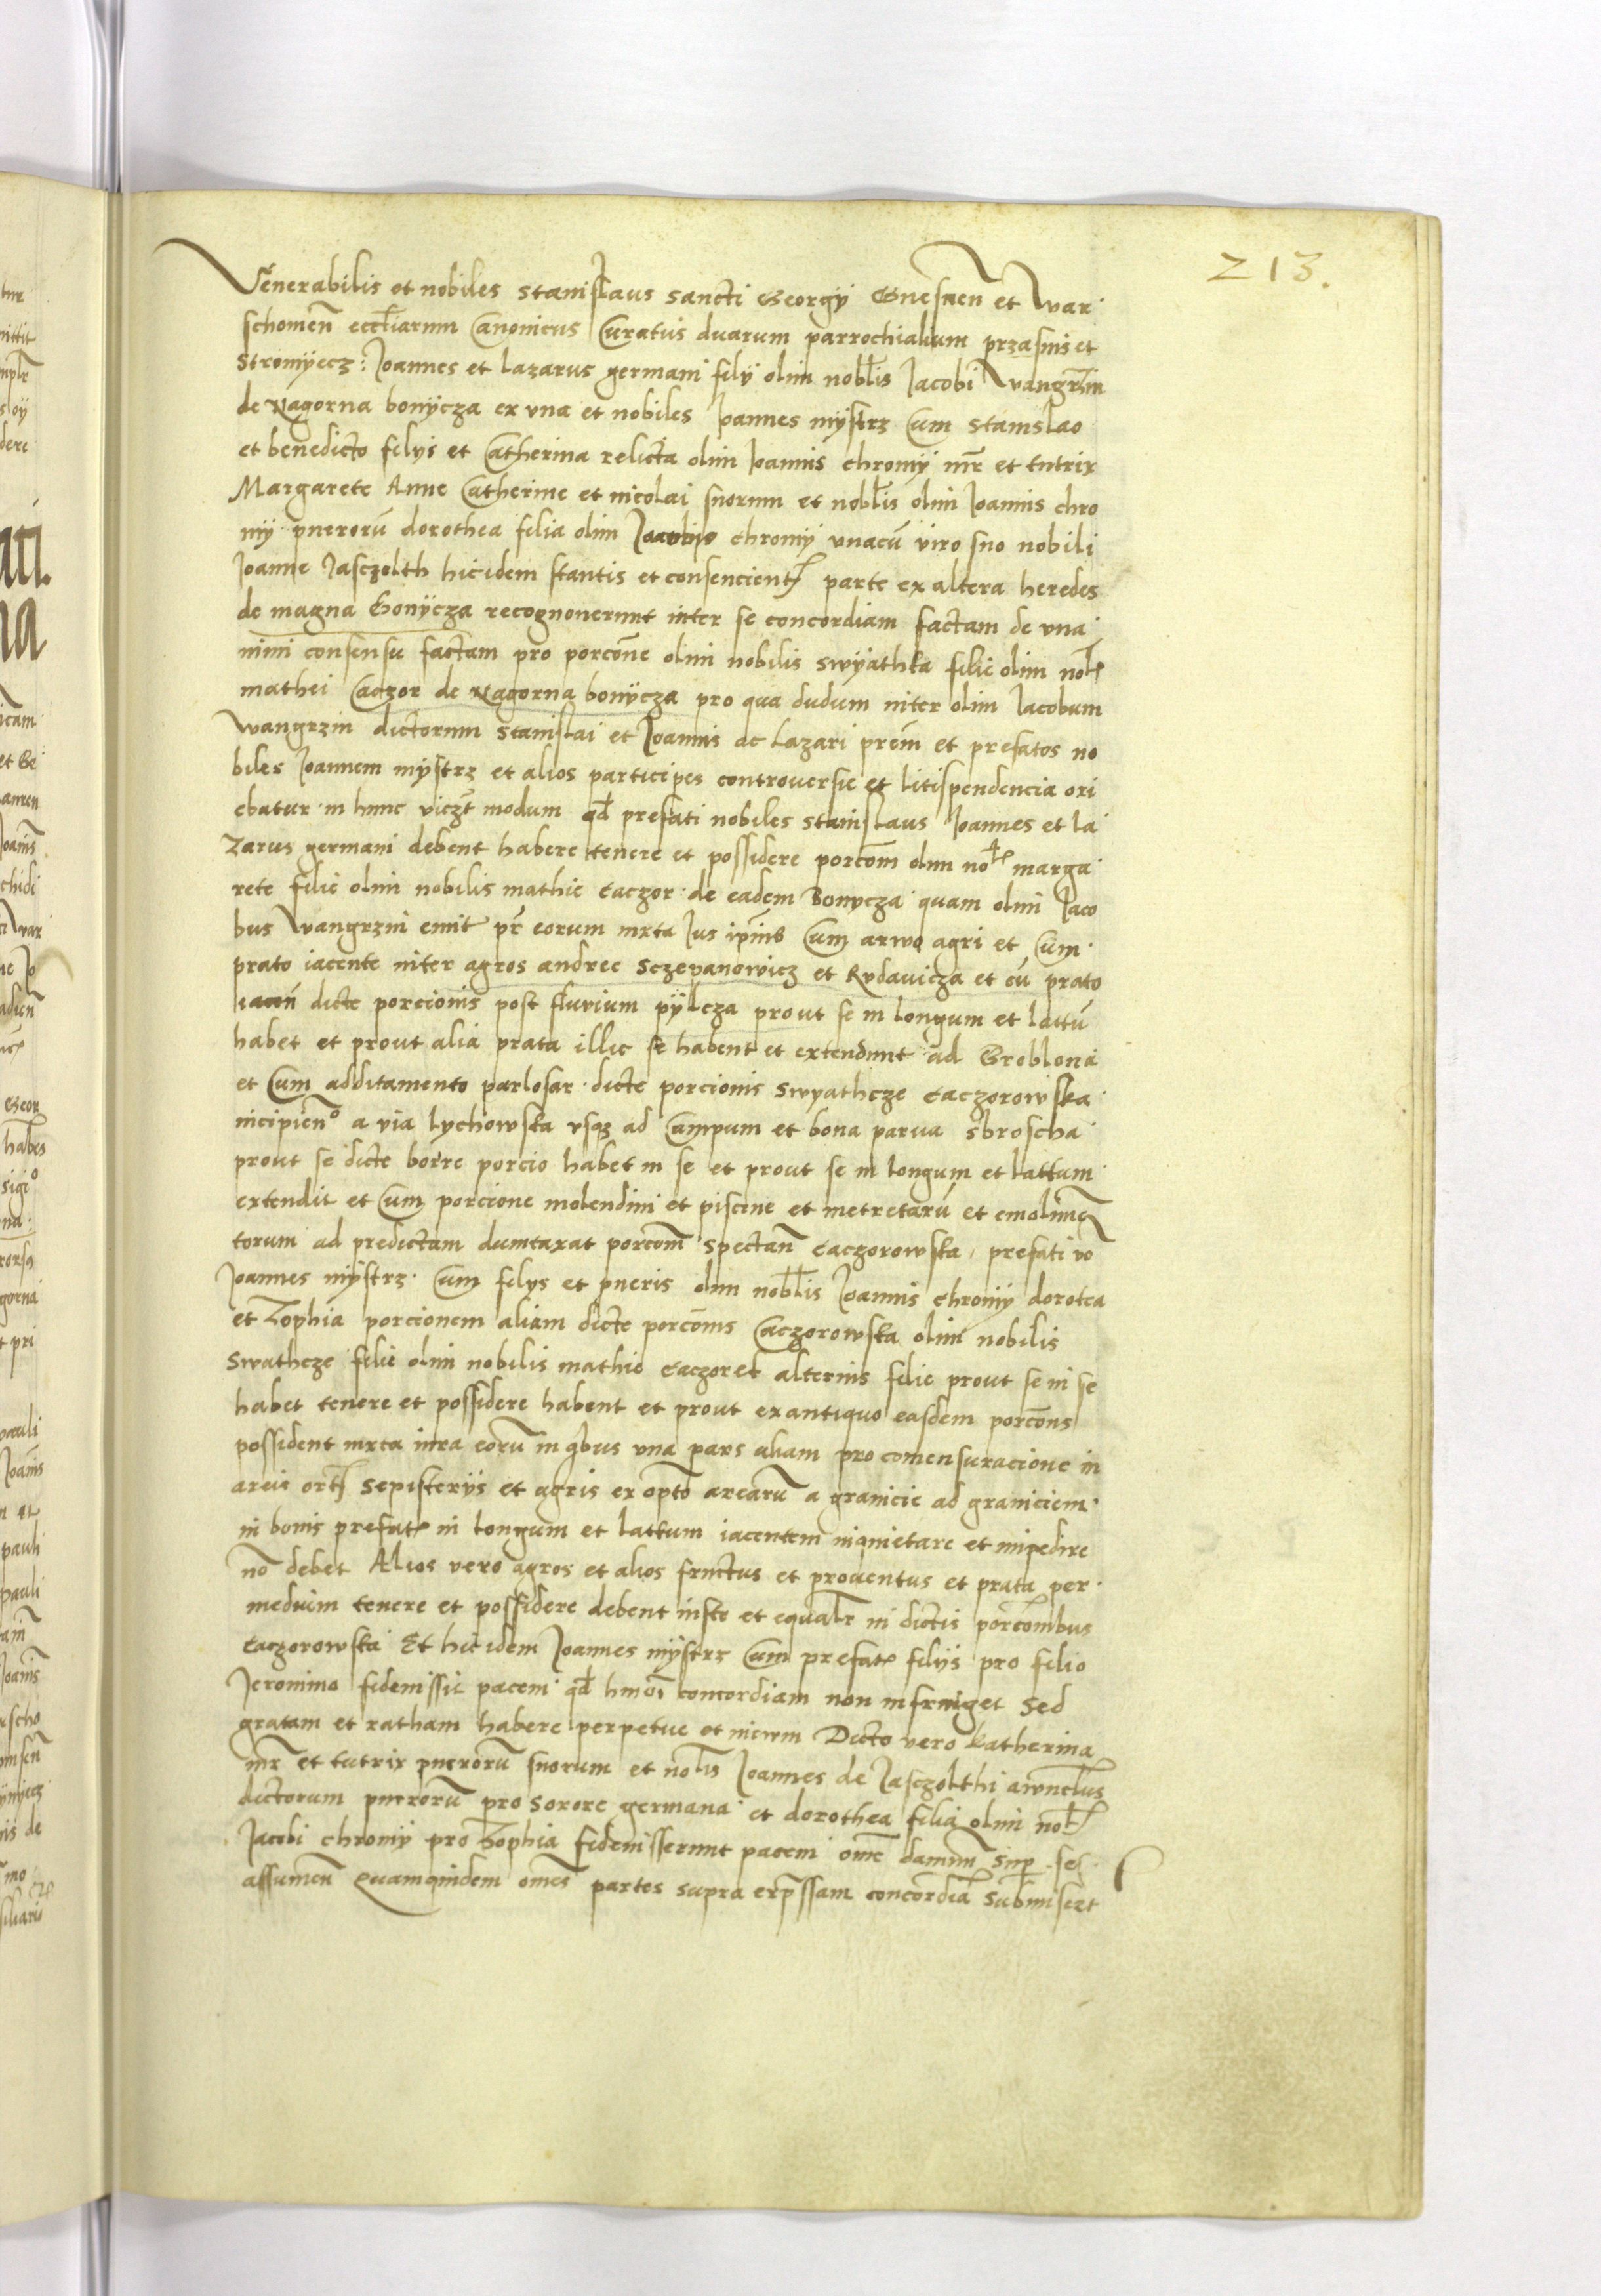 213.
Venerabilis et nobiles Stanislaus Sancti Georgÿ Gnesnen̄ et War
schowien̄ eccl̄iarum Canonicus Curatus duarum parrochialium przasnis et
Stromÿecz: Joannes et lazarus germani filÿ olim nobl̄is Jacobi Wangrzin
de Nagorna bonÿcza ex vna et nobiles Joannes mÿstrz Cum Stanislao
et benedicto filÿs et Catherina relicta olim Joannis chromÿ mr̄ et tutrix
Margarete Anne Catherine et nicolai suorum et nobl̄is olim Joannis chro
mÿ puerorū dorothea filia olim Jacobi chromÿ vnacū viro suo nobili
Joanne Jasczolth hic idem stantis et consencient parte ex altera heredes
de magna Bonÿcza recognouerunt inter se concordiam factam de vna
nimi consensu factam pro porcōne olim nobilis swÿathka filie olim nobl
mathei Caczor de Nagorna bonÿcza pro qua dudum inter olim Jacobum
Wangrzin dictorum Stanislai et Joannis ac lazari prēm et prefatos no
biles Joannem mÿstrz et alios participes controuersie et litispendencia ori
ebatur in hunc viczt modum qd prefati nobiles Stanislaus Joannes et la
zarus germani debent habere tenere et possidere porcōm olim nobl marga
rete filie olim nobilis mathie caczor de eadem Bonycza quam olim Jaco
bus Wangrzin emit pr̄ eorum iuxta Jus ipīus Cum arwo agri et Cum
prato iacente inter agros andree Sczepanowicz et Rudavicza et cū prato
iacen̄ dicte porcionis post fluvium pÿlcza prout se in longum et lattū
habet et prout alia prata illic se habent et extendunt ad Groblona
et Cum additamento parlosar dicte porcionis Swyathcze caczorowska
incipien̄o a via lychowska vsqz ad Campum et bona parua Sbroscha
prout se dicte borre porcio habet in se et prout se in longum et lattum
extendit et Cum porcione molendini et piscine et metretarū et emolimen
torum ad predictam dumtaxat porcōm Spectan̄ caczorowska, prefati vo
Joannes mÿstrz Cum filÿs et pueris olim nobl̄is Joannis chromÿ dorotea
et Zophia porcionem aliam dicte porcōnis Caczorowska olim nobilis
Swathcze filie olim nobilis mathie caczor et alterius filie prout se in se
habet tenere et possidere habent et prout ex antiquo easdem porcōns
possident iuxta iura eorū in qbus vna pars aliam pro comensuracione in
areis ort Sepisterÿs et agris ex opto arearū a granicie ad graniciem
in bonis prefat in longum et lattum iacentem inquietare et impedire
nō debet Alios vero agros et alios fructus et prouentus et prata per
medium tenere et possidere debent iuste et equalr in dictis porcōnibus
caczorowska Et hic idem Joannes mÿstrz Cum prefat filÿs pro filio
Jeronimo fideiussit pacem qd hmōi concordiam non infringet Sed
gratam et ratham habere perpetue et in ewm Dicta vero Katherina
mr̄ et tutrix puerorū suorum et nobl̄is Joannes de Jasczolthi awncl̄us
dictorum puerorū pro Sorore germana et dorothea filia olim nobl
Jacobi chromÿ pro Zophia fideiusserunt pacem ome damnū Sup se
assumen̄ Quamquidem omes partes supra exp̄ssam concordiā Submisert